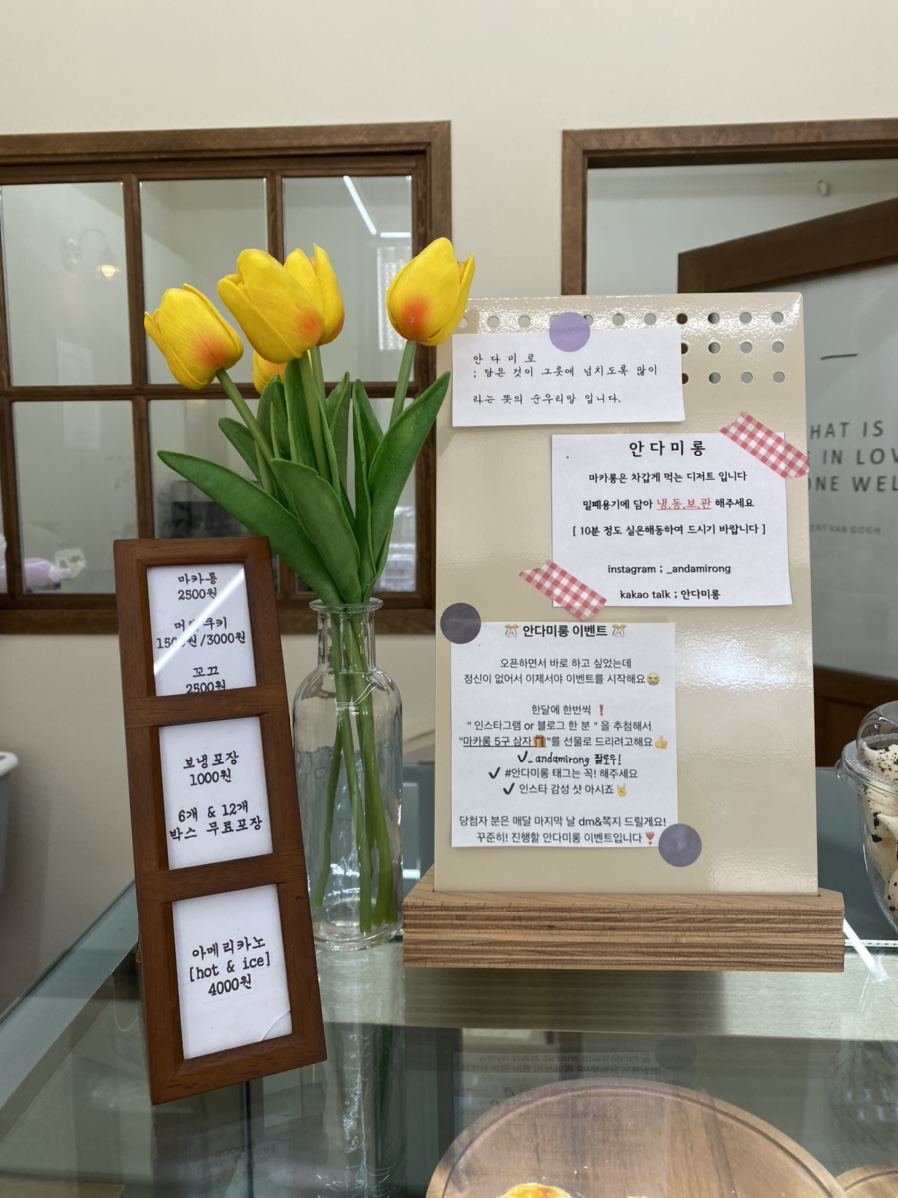 마카롱
2500원
쿠키
/3000원
꼬끄
2500원
보냉포장
1000원
6개 & 12개
박스 무료포장
아메리카노
[hot & ice]
4000원
안다미로
; 담은 것이 그릇에 넘치도록 많이
라는 뜻의 순우리말 입니다.
안다미롱
마카롱은 차갑게 먹는 디저트 입니다
밀폐용기에 담아 냉.동.보.관 해주세요
[ 10분 정도 실온해동하여 드시기 바랍니다 ]
instagram ; _andamirong
kakao talk ; 안다미롱
안다미롱 이벤트
오픈하면서 바로 하고 싶었는데
정신이 없어서 이제서야 이벤트를 시작해요😭
한달에 한번씩 ❗
" 인스타그램 or 블로그 한 분 " 을 추첨해서
"마카롱 5구 상자🎁"를 선물로 드리려고해요👍
✓_andamirong 팔로우!
✓ #안다미롱 태그는 꼭! 해주세요
✓ 인스타 감성 샷 아시죠🤘
당첨자 분은 매달 마지막 날 dm&쪽지 드릴게요!
꾸준히! 진행할 안다미롱 이벤트입니다❣
HAT IS
IN LOV
ONE WEL
VAN GOGH